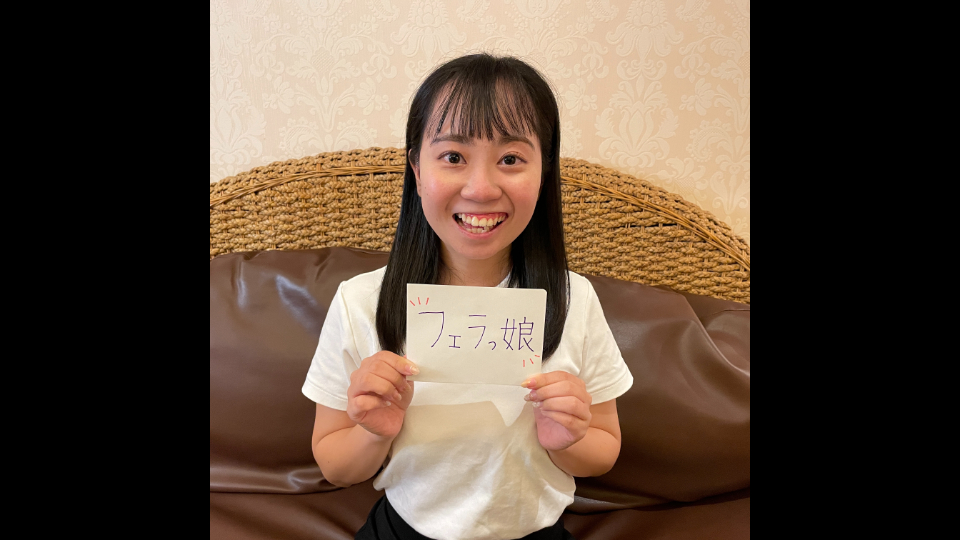 フェラっ娘